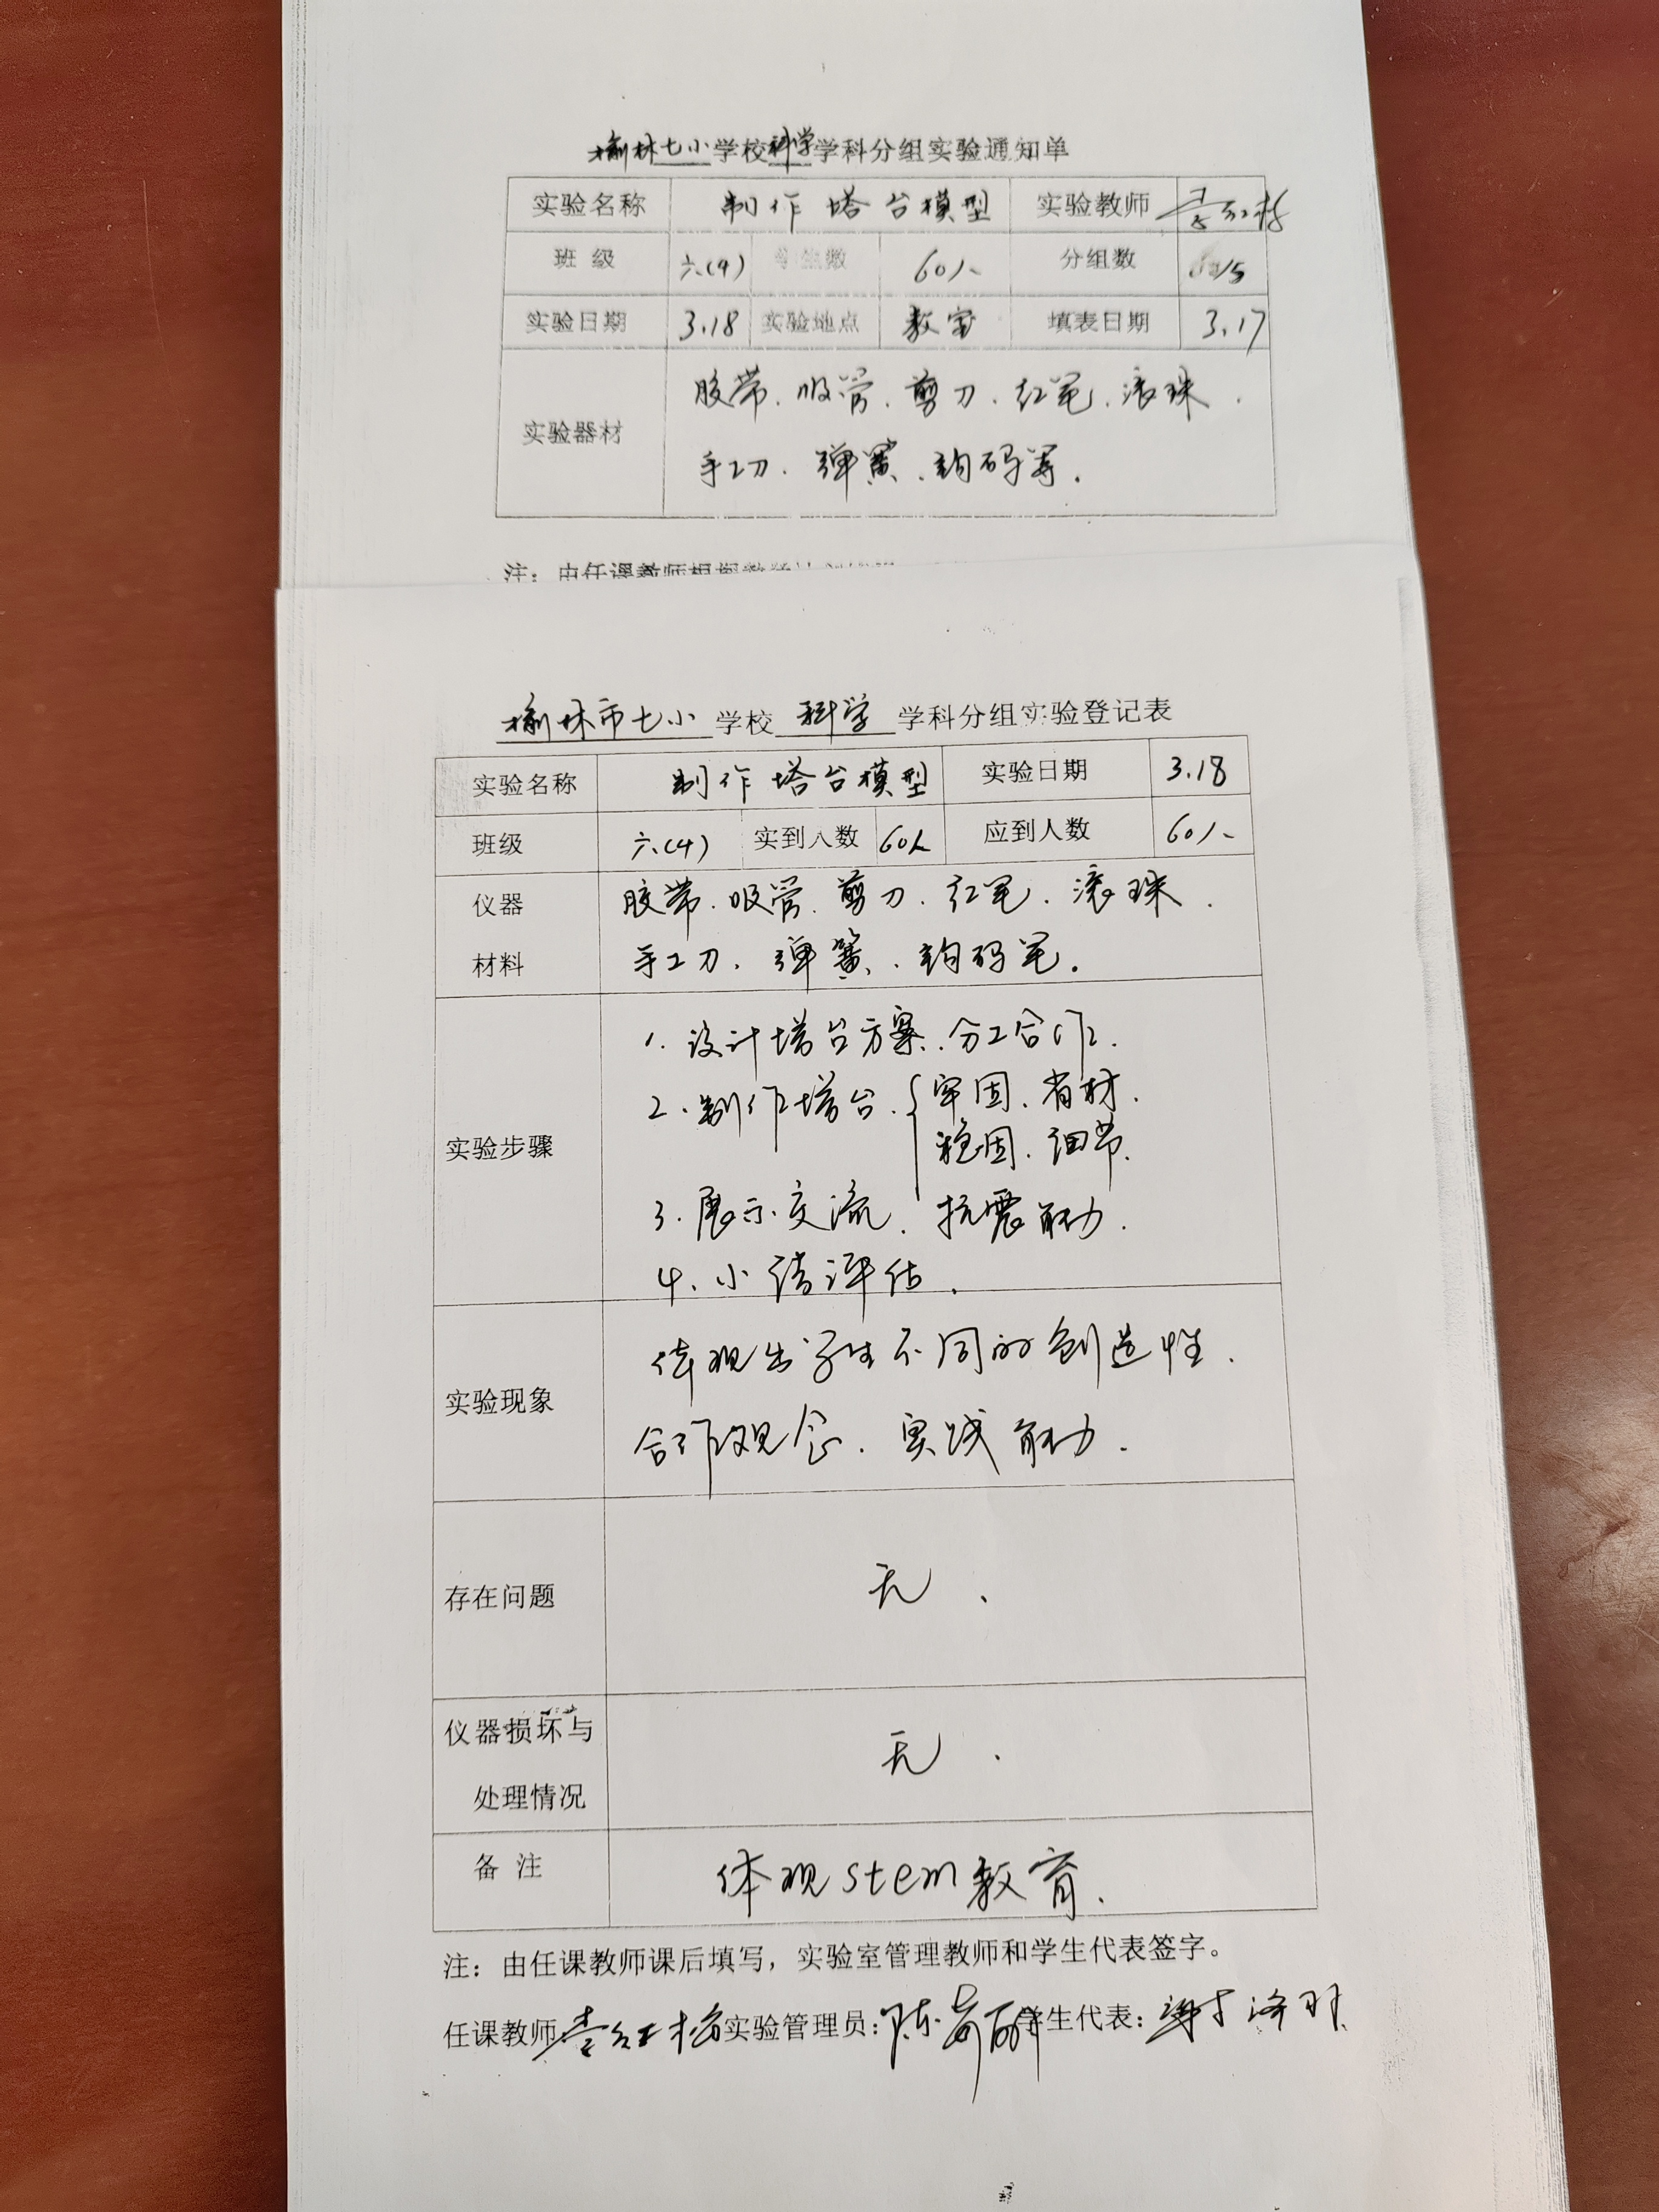 榆林七小学校科学学科分组实验通知单
实验名称 制作塔台模型 实验教师
班 级 六(4) 学生数 60人 分组数 15
实验日期 3.18 实验地点 教室 填表日期 3.17
实验器材 胶带.吸管.剪刀.红笔.滚珠.
手工刀.弹簧.钩码等.
注：由任课教师根据教学
榆林市七小学校科学学科分组实验登记表
实验名称 制作塔台模型 实验日期 3.18
班级 六(4) 实到人数 60人 应到人数 60人
仪器 胶带.吸管.剪刀.红笔.滚珠.
材料 手工刀.弹簧.钩码笔.
实验步骤
1.设计塔台方案.分工合作.
2.制作塔台.{牢固.省材.
稳固.细节.
3.展示交流.抗震能力.
4.小结评估.
实验现象
体现出学生不同的创造性.
合作观念.实践能力.
存在问题 无.
仪器损坏与 无.
处理情况
备 注 体现stem教育.
注：由任课教师课后填写，实验室管理教师和学生代表签字。
任课教师 实验管理员：陈 学生代表：谢